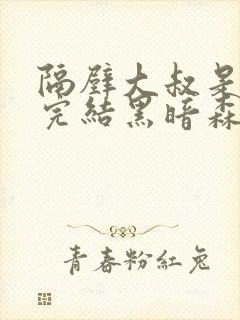 隔壁大叔是
完結黑暗森
青春粉紅兔